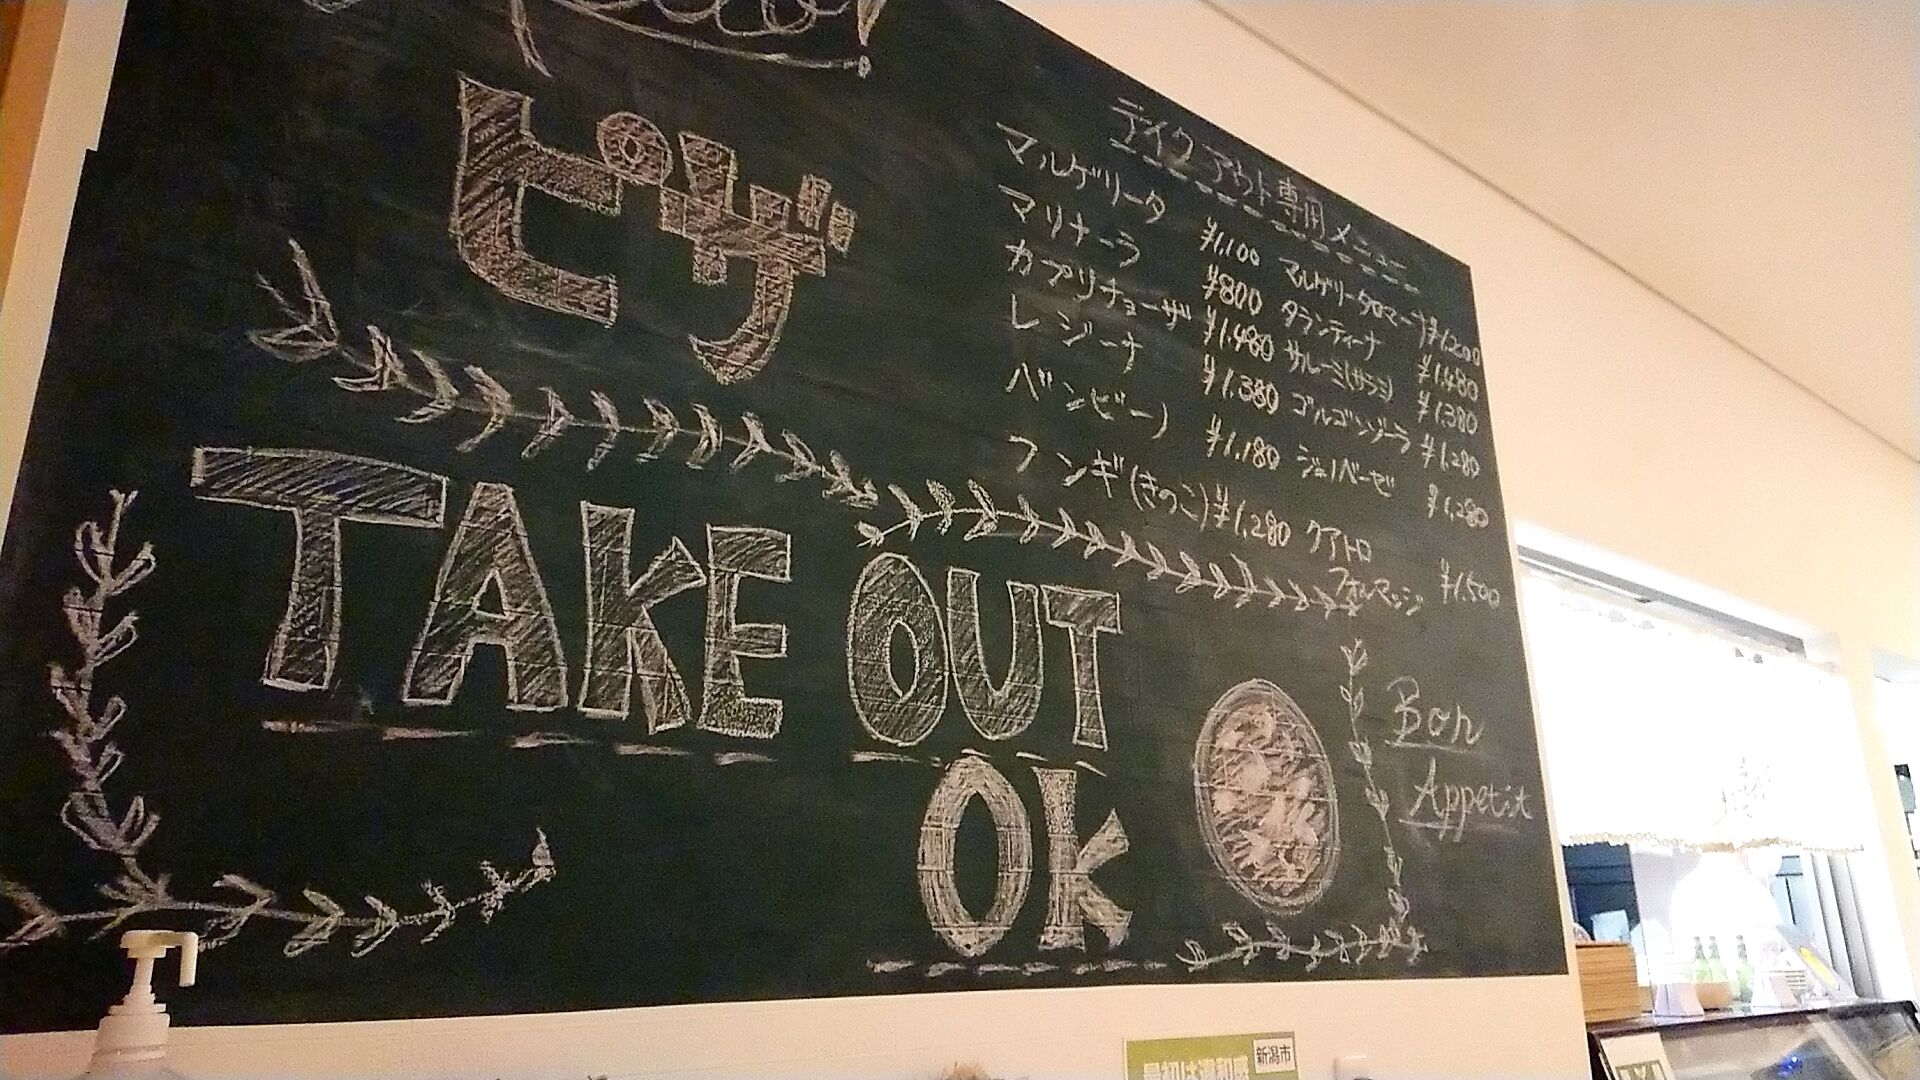 ピザ
TAKE OUT
OK
テイクアウト専用メニュー
マルゲリータ ¥1,100
マリナーラ ¥800
カプリチョーザ ¥1,480
レジーナ ¥1,380
バンビーノ ¥1,180
フンギ(きのこ) ¥1,280
マルゲリータロマーナ ¥1,200
タランティーナ ¥1,480
サルーミ(サラミ) ¥1,380
ゴルゴンゾーラ ¥1,280
ジェノベーゼ ¥1,280
クアトロ
フォルマッジ ¥1,500
Bon
Appetit
新潟市
最初は違和感